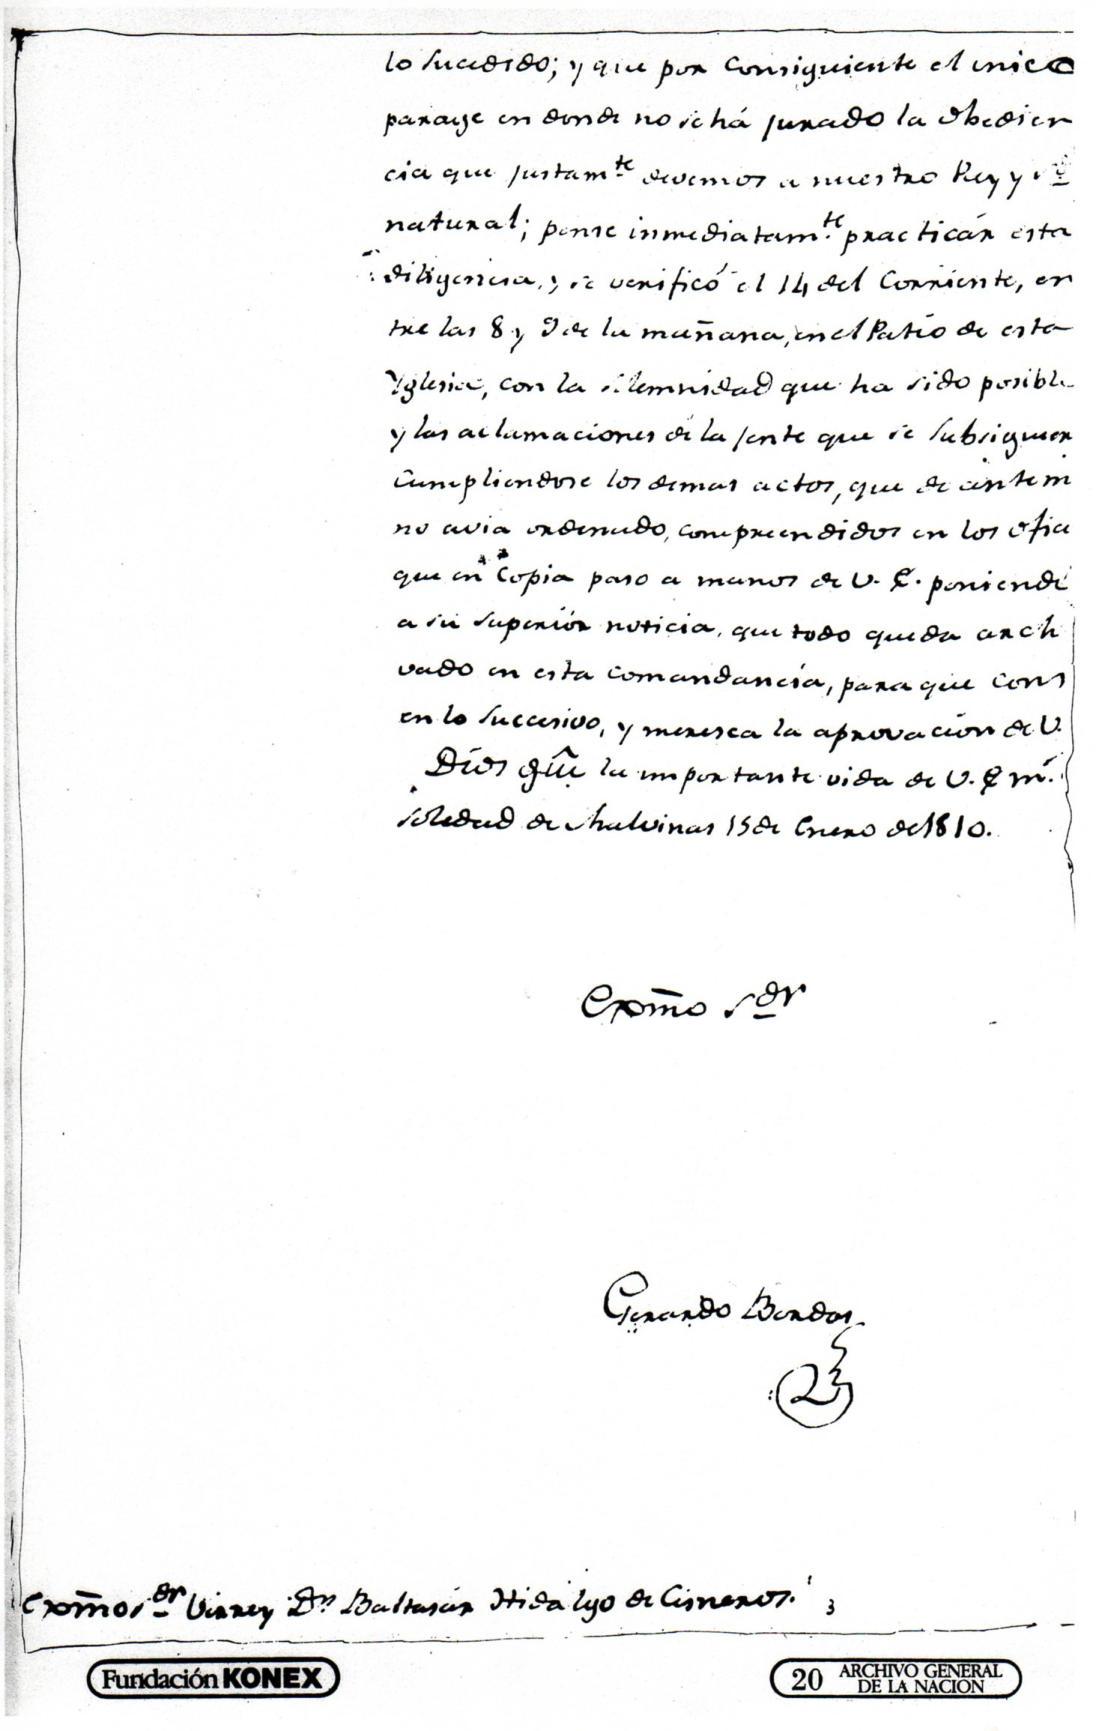 lo sucedido; y que por consiguiente el unico
parage en donde no se há jurado la obedien
cia que justam.te devemos a nuestro Rey y
natural; pense inmediatam.te practicár esta
diligencia, y se verificó el 14 del Corriente, en
tre las 8 y 9 de la mañana, en el Patio de esta
Yglesia, con la solemnidad que ha sido posible
y las aclamaciones de la jente que se subsiguien
cumpliendose los demas actos, que de antem
no avia ordenado, compreendidos en los ofic
que en copia paso a manos de V. E. poniendo
a su superiór noticia, que todo queda arch
vado en esta comandancia, para que cons
en lo succesivo, y meresca la aprovación de V.
Dios gũe la importante vida de V. E. m.s
Soledad de Malvinas 15 de Enero de 1810.
Exm̃o S.or
Gerardo Bordas
Exm̃o S.or Virrey D.n Baltasár Hidalgo de Cisneros.
Fundación KONEX
20 ARCHIVO GENERAL
DE LA NACION